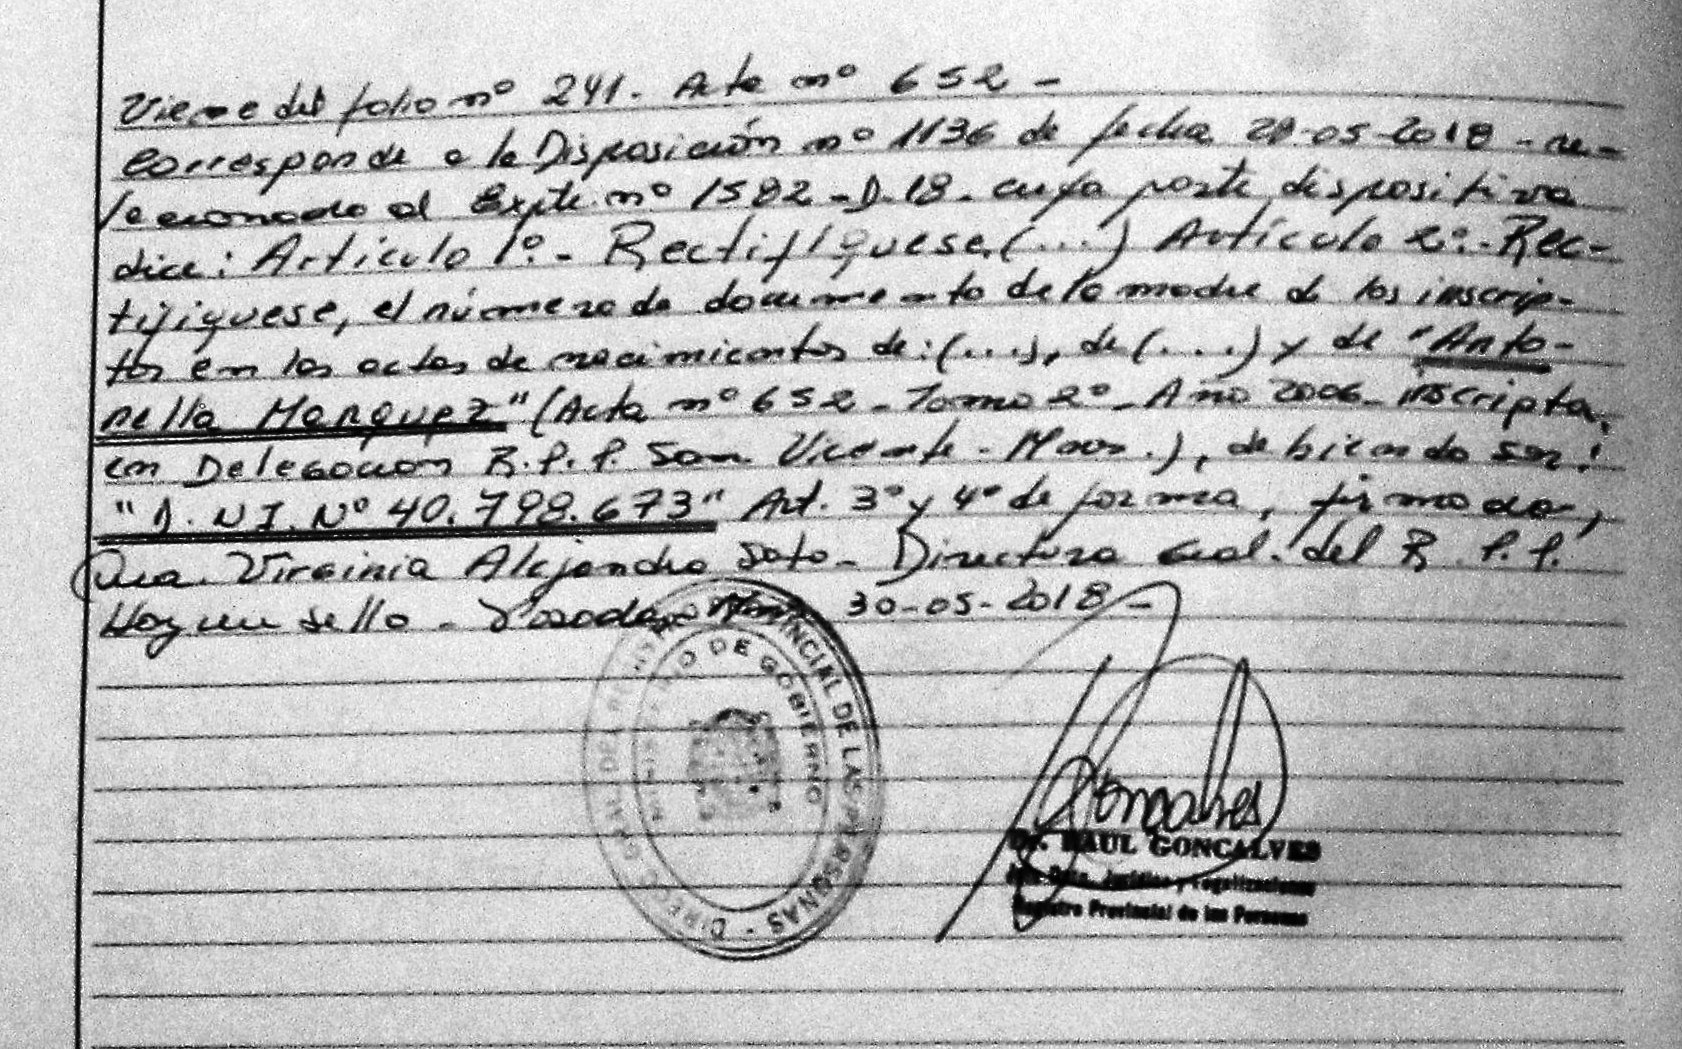 Viene del folio nº 241. Acta nº 652 -
Corresponde a la Disposición nº 1136 de fecha 28-05-2018 - re-
lacionado al Expte. nº 1582-D-18. cuya parte dispositiva
dice: Artículo 1º.- Rectifíquese, (...) Artículo 2º.- Rec-
tifíquese, el número de documento de la madre de los inscrip-
tos en las actas de nacimientos de: (...), de (...) y de "Anto-
nella Marquez" (Acta nº 652 - Tomo 2º - Año 2006 - inscripta,
en Delegación R.P.P. San Vicente - Mnes.), debiendo ser:
"D.N.I. Nº 40.798.673" Art. 3º y 4º de forma, firmado,
Dra. Virginia Alejandra Soto - Directora Gral. del R.P.P.
Hay un sello - Posadas 30-05-2018 -
PROVINCIAL DE LAS PERSONAS - DIRECC GRAL DEL
MINISTERIO DE GOBIERNO
Goncalves
Dr. RAUL GONCALVES
Jurídica y Legalizaciones
Registro Provincial de las Personas